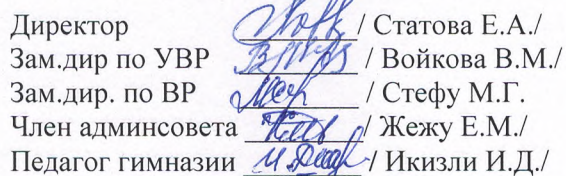 Директор / Статова Е.А./
Зам.дир по УВР / Войкова В.М./
Зам.дир. по ВР / Стефу М.Г.
Член админсовета / Жежу Е.М./
Педагог гимназии / Икизли И.Д./